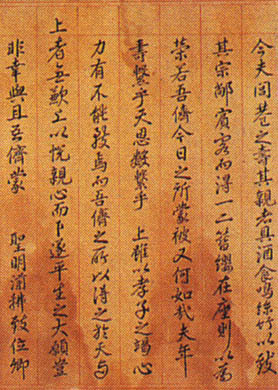 今夫閭巷之壽其親者具酒食鳴絲竹以致
其宗鄰賓客而得一二簪纓在座則以為
榮若吾儕今日之所蒙被又何如哉夫年
壽繫乎天恩數繫乎 上雖以孝子之竭心
力有不能致焉而吾儕之所以得之於天與
上者 上以悅親心而下遂平生之大願豈
非幸與且吾儕蒙 聖明 拂致位卿